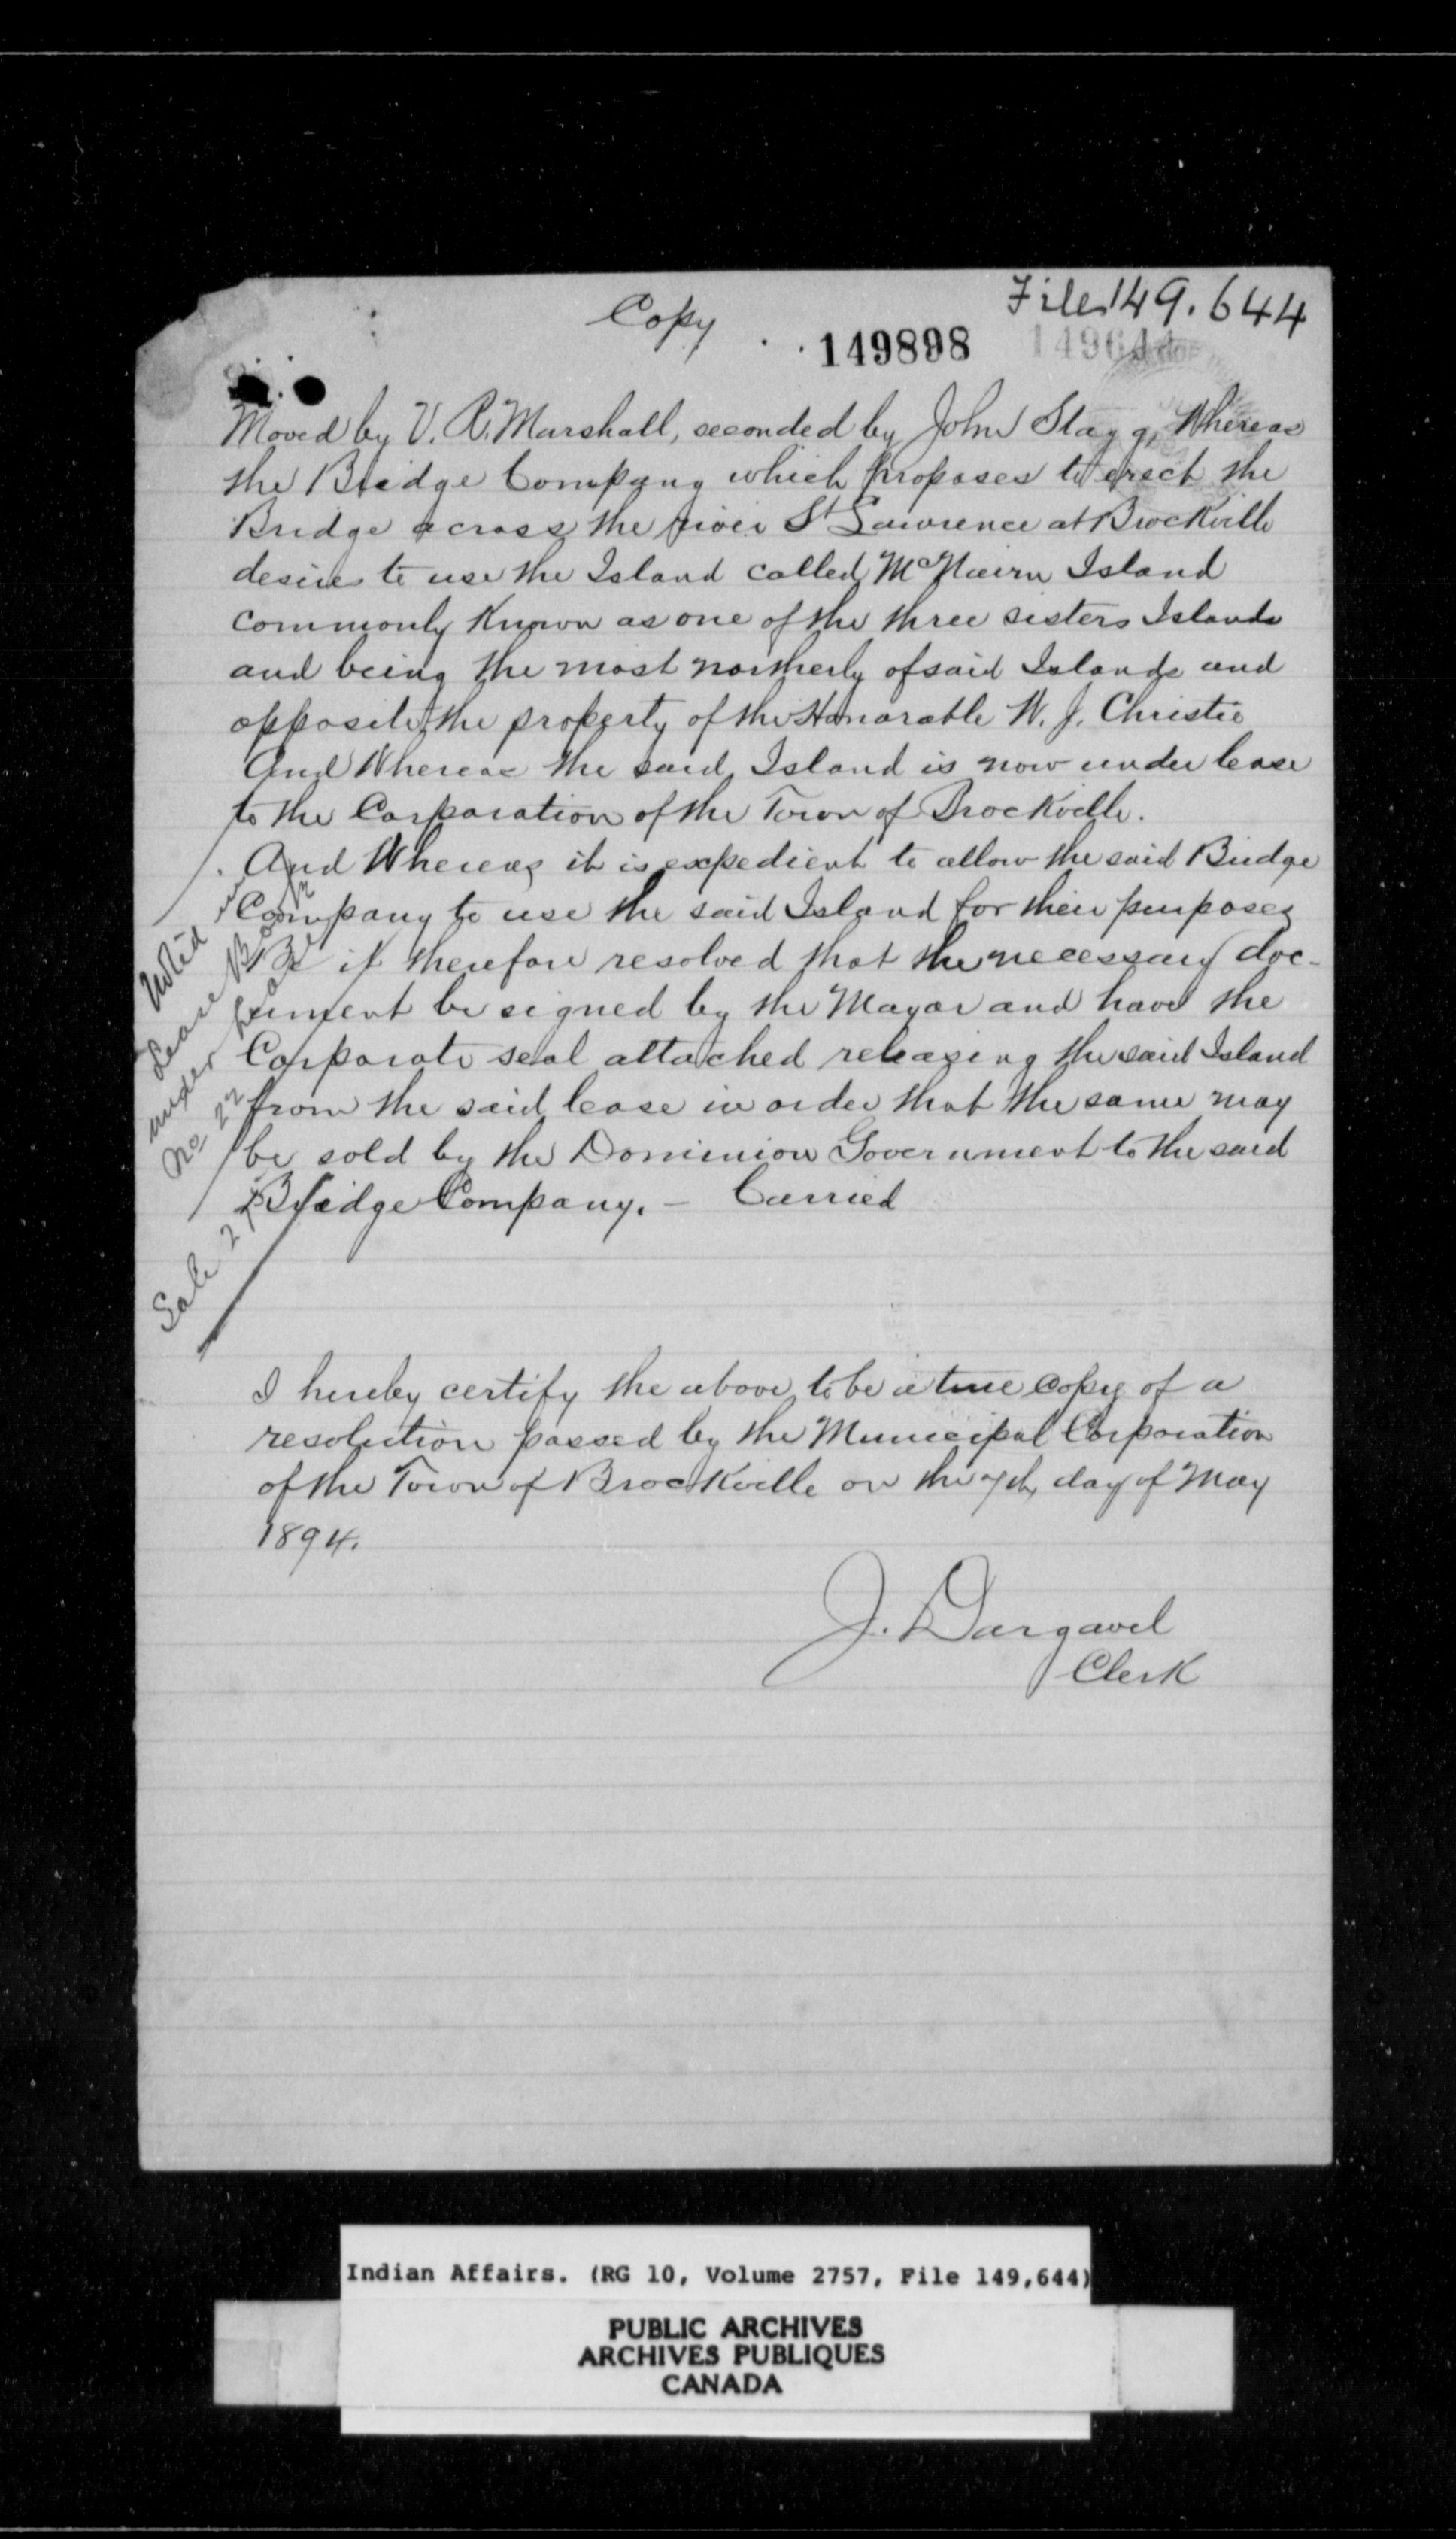 Copy
File 149.644
149898 149644
Moved by V. R. Marshall, seconded by John Stagg, Whereas
the Bridge Company which proposes to erect the
Bridge across the river St Lawrence at Brockville
desires to use the Island called McNairn Island
commonly Known as one of the three sisters Islands
and being the most northerly of said Islands and
opposite the property of the Honorable W. J. Christie
And Whereas the said Island is now under lease
to the Corporation of the Town of Brockville.
And Whereas it is expedient to allow the said Bridge
Company to use the said Island for their purposes
Be it therefore resolved that the necessary doc-
ument be signed by the Mayor and have the
Corporate seal attached releasing the said Island
from the said lease in order that the same may
be sold by the Dominion Government to the said
Bridge Company. - Carried
Noted in
Lease Book
under Lease
No 22
Sale
I hereby certify the above to be a true copy of a
resolution passed by the Municipal Corporation
of the Town of Brockville on the 7th day of May
1894.
J. Dargavel
Clerk
Indian Affairs. (RG 10, Volume 2757, File 149,644)
PUBLIC ARCHIVES
ARCHIVES PUBLIQUES
CANADA